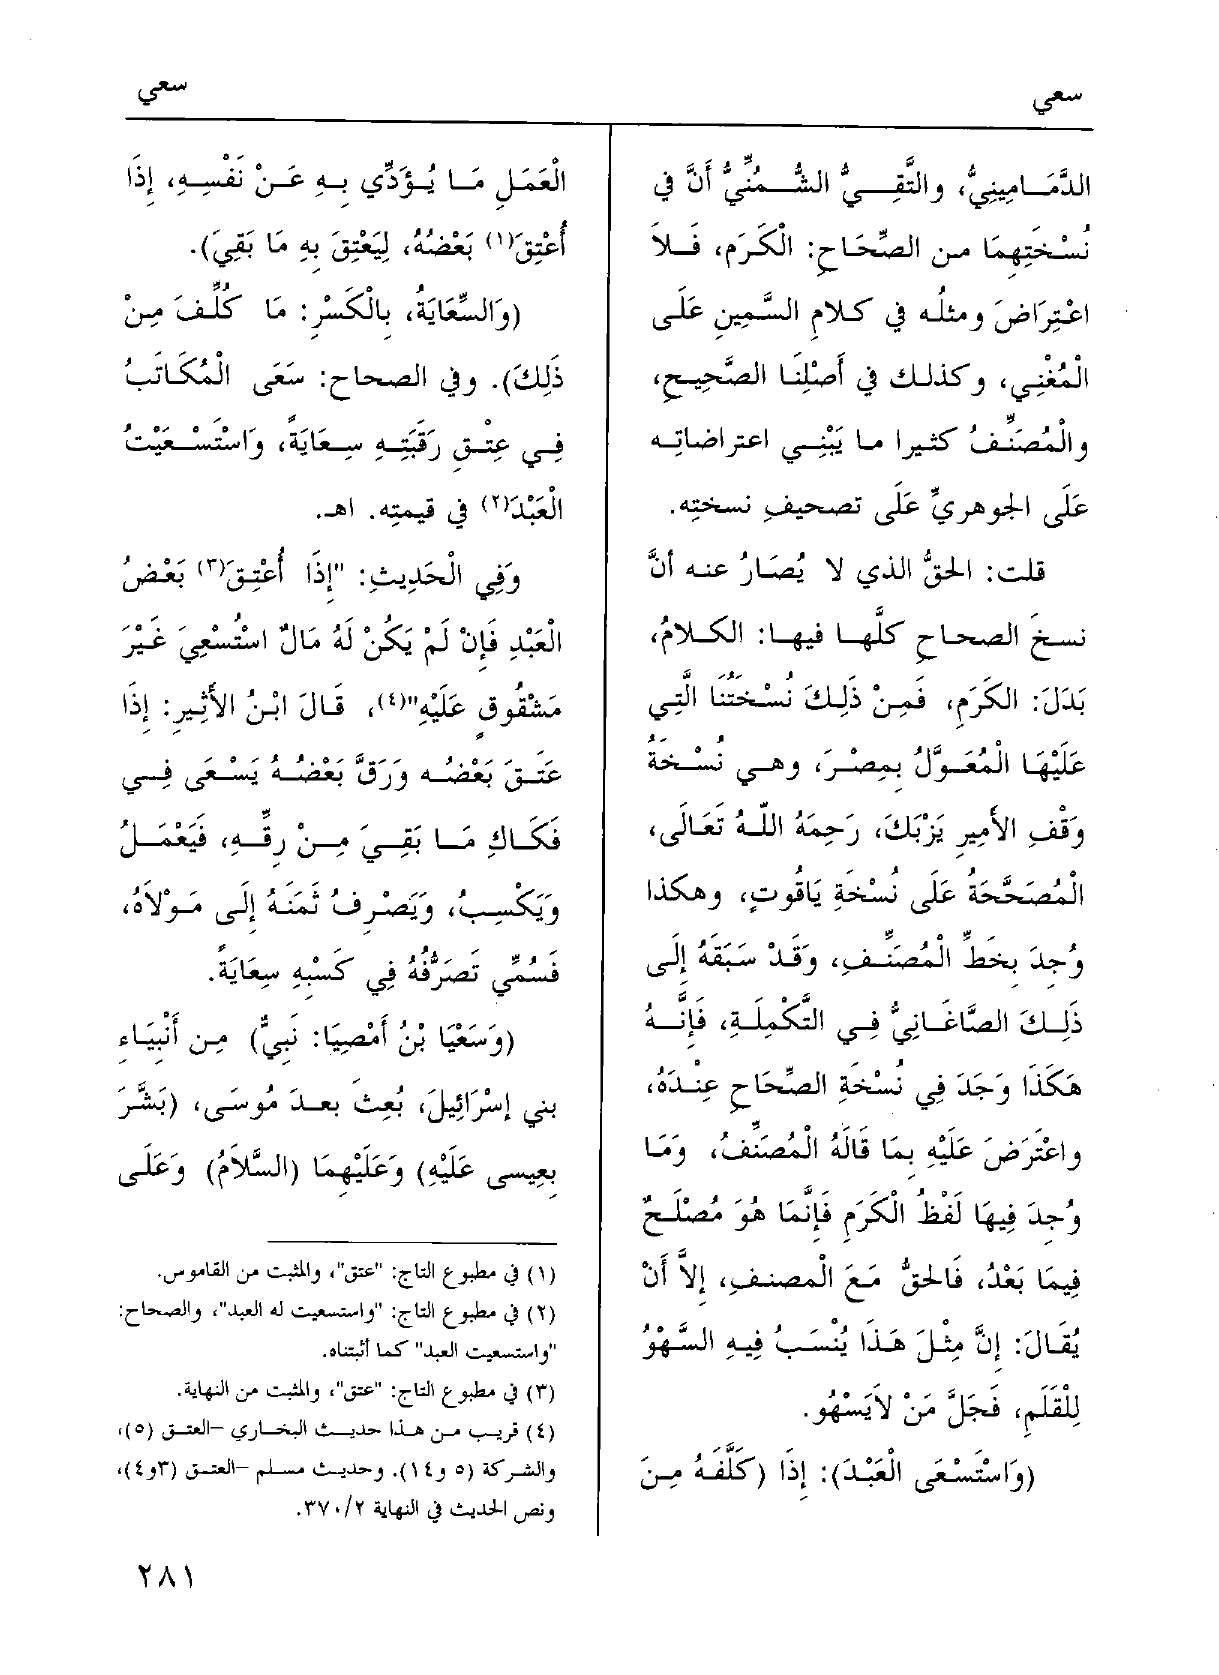 سعي
سعي
الدَّمَامِينِيُّ، والتَّقِيُّ الشُّمُنِّيُّ أَنَّ في
نُسْخَتِهِمَا من الصِّحَاحِ: الْكَرَمِ، فَلاَ
اعْتِرَاضَ ومثلُه في كلامِ السَّمِينِ عَلَى
الْمُغْنِي، وكذلك في أَصْلِنَا الصَّحِيحِ،
والْمُصَنِّفُ كثيرا ما يَبْنِي اعتراضاتِه
عَلَى الجوهريِّ عَلَى تصحيفِ نسختِه.
قلت: الحقُّ الذي لا يُصَارُ عنه أنَّ
نسخَ الصحاحِ كلَّها فيها: الكلامُ،
بَدَلَ: الكَرَمِ، فَمِنْ ذَلِكَ نُسْخَتُنَا الَّتِي
عَلَيْهَا الْمُعَوَّلُ بمِصْرَ، وهي نُسْخَةُ
وَقْفِ الأميرِ يَزْبَكَ، رَحِمَهُ اللَّهُ تَعَالَى،
الْمُصَحَّحَةُ عَلَى نُسْخَةِ يَاقُوتٍ، وهكذا
وُجِدَ بِخَطِّ الْمُصَنِّفِ، وَقَدْ سَبَقَهُ إِلَى
ذَلِكَ الصَّاغَانِيُّ فِي التَّكْمِلَةِ، فَإِنَّهُ
هَكَذَا وَجَدَ فِي نُسْخَةِ الصِّحَاحِ عِنْدَهُ،
واعْتَرَضَ عَلَيْهِ بِمَا قَالَهُ الْمُصَنِّفُ، وَمَا
وُجِدَ فِيهَا لَفْظُ الْكَرَمِ فَإِنَّمَا هُوَ مُصْلَحٌ
فِيمَا بَعْدُ، فَالحقُّ مَعَ المصنفِ، إلاَّ أَنْ
يُقَالَ: إِنَّ مِثْلَ هَذَا يُنْسَبُ فِيهِ السَّهْوُ
لِلْقَلَمِ، فَجَلَّ مَنْ لاَيَسْهُو.
(وَاسْتَسْعَى الْعَبْدَ): إِذَا (كَلَّفَهُ مِنَ
الْعَمَلِ مَا يُؤَدِّي بِهِ عَنْ نَفْسِهِ، إِذَا
أُعْتِقَ(١) بَعْضُهُ، لِيَعْتِقَ بِهِ مَا بَقِيَ).
(وَالسِّعَايَةُ، بِالْكَسْرِ: مَا كُلِّفَ مِنْ
ذَلِكَ). وفي الصحاح: سَعَى الْمُكَاتَبُ
فِي عِتْقِ رَقَبَتِهِ سِعَايَةً، وَاسْتَسْعَيْتُ
الْعَبْدَ(٢) في قيمتِه. اهـ.
وَفِي الْحَدِيثِ: "إِذَا أُعْتِقَ(٣) بَعْضُ
الْعَبْدِ فَإِنْ لَمْ يَكُنْ لَهُ مَالٌ اسْتُسْعِيَ غَيْرَ
مَشْقُوقٍ عَلَيْهِ"(٤)، قَالَ ابْنُ الأَثِيرِ: إِذَا
عَتَقَ بَعْضُه وَرَقَّ بَعْضُهُ يَسْعَى فِي
فَكَاكِ مَا بَقِيَ مِنْ رِقِّهِ، فَيَعْمَلُ
وَيَكْسِبُ، وَيَصْرِفُ ثَمَنَهُ إِلَى مَوْلاَهُ،
فَسُمِّيَ تَصَرُّفُهُ فِي كَسْبِهِ سِعَايَةً.
(وَسَعْيَا بْنُ أَمْصِيَا: نَبِيٌّ) مِن أَنْبِيَاءِ
بني إسْرَائِيلَ، بُعِثَ بعدَ مُوسَى، (بَشَّرَ
بعِيسى عَلَيْهِ) وَعَلَيْهِمَا (السَّلاَمُ) وَعَلَى
(١) في مطبوع التاج: "عتق"، والمثبت من القاموس.
(٢) في مطبوع التاج: "واستسعيت له العبد"، والصحاح:
"واستسعيت العبد" كما أثبتناه.
(٣) في مطبوع التاج: "عتق"، والمثبت من النهاية.
(٤) قريب من هذا حديث البخاري –العتق (٥)،
والشركة (٥ و١٤). وحديث مسلم –العتق (٣و٤)،
ونص الحديث في النهاية ٣٧٠/٢.
٢٨١